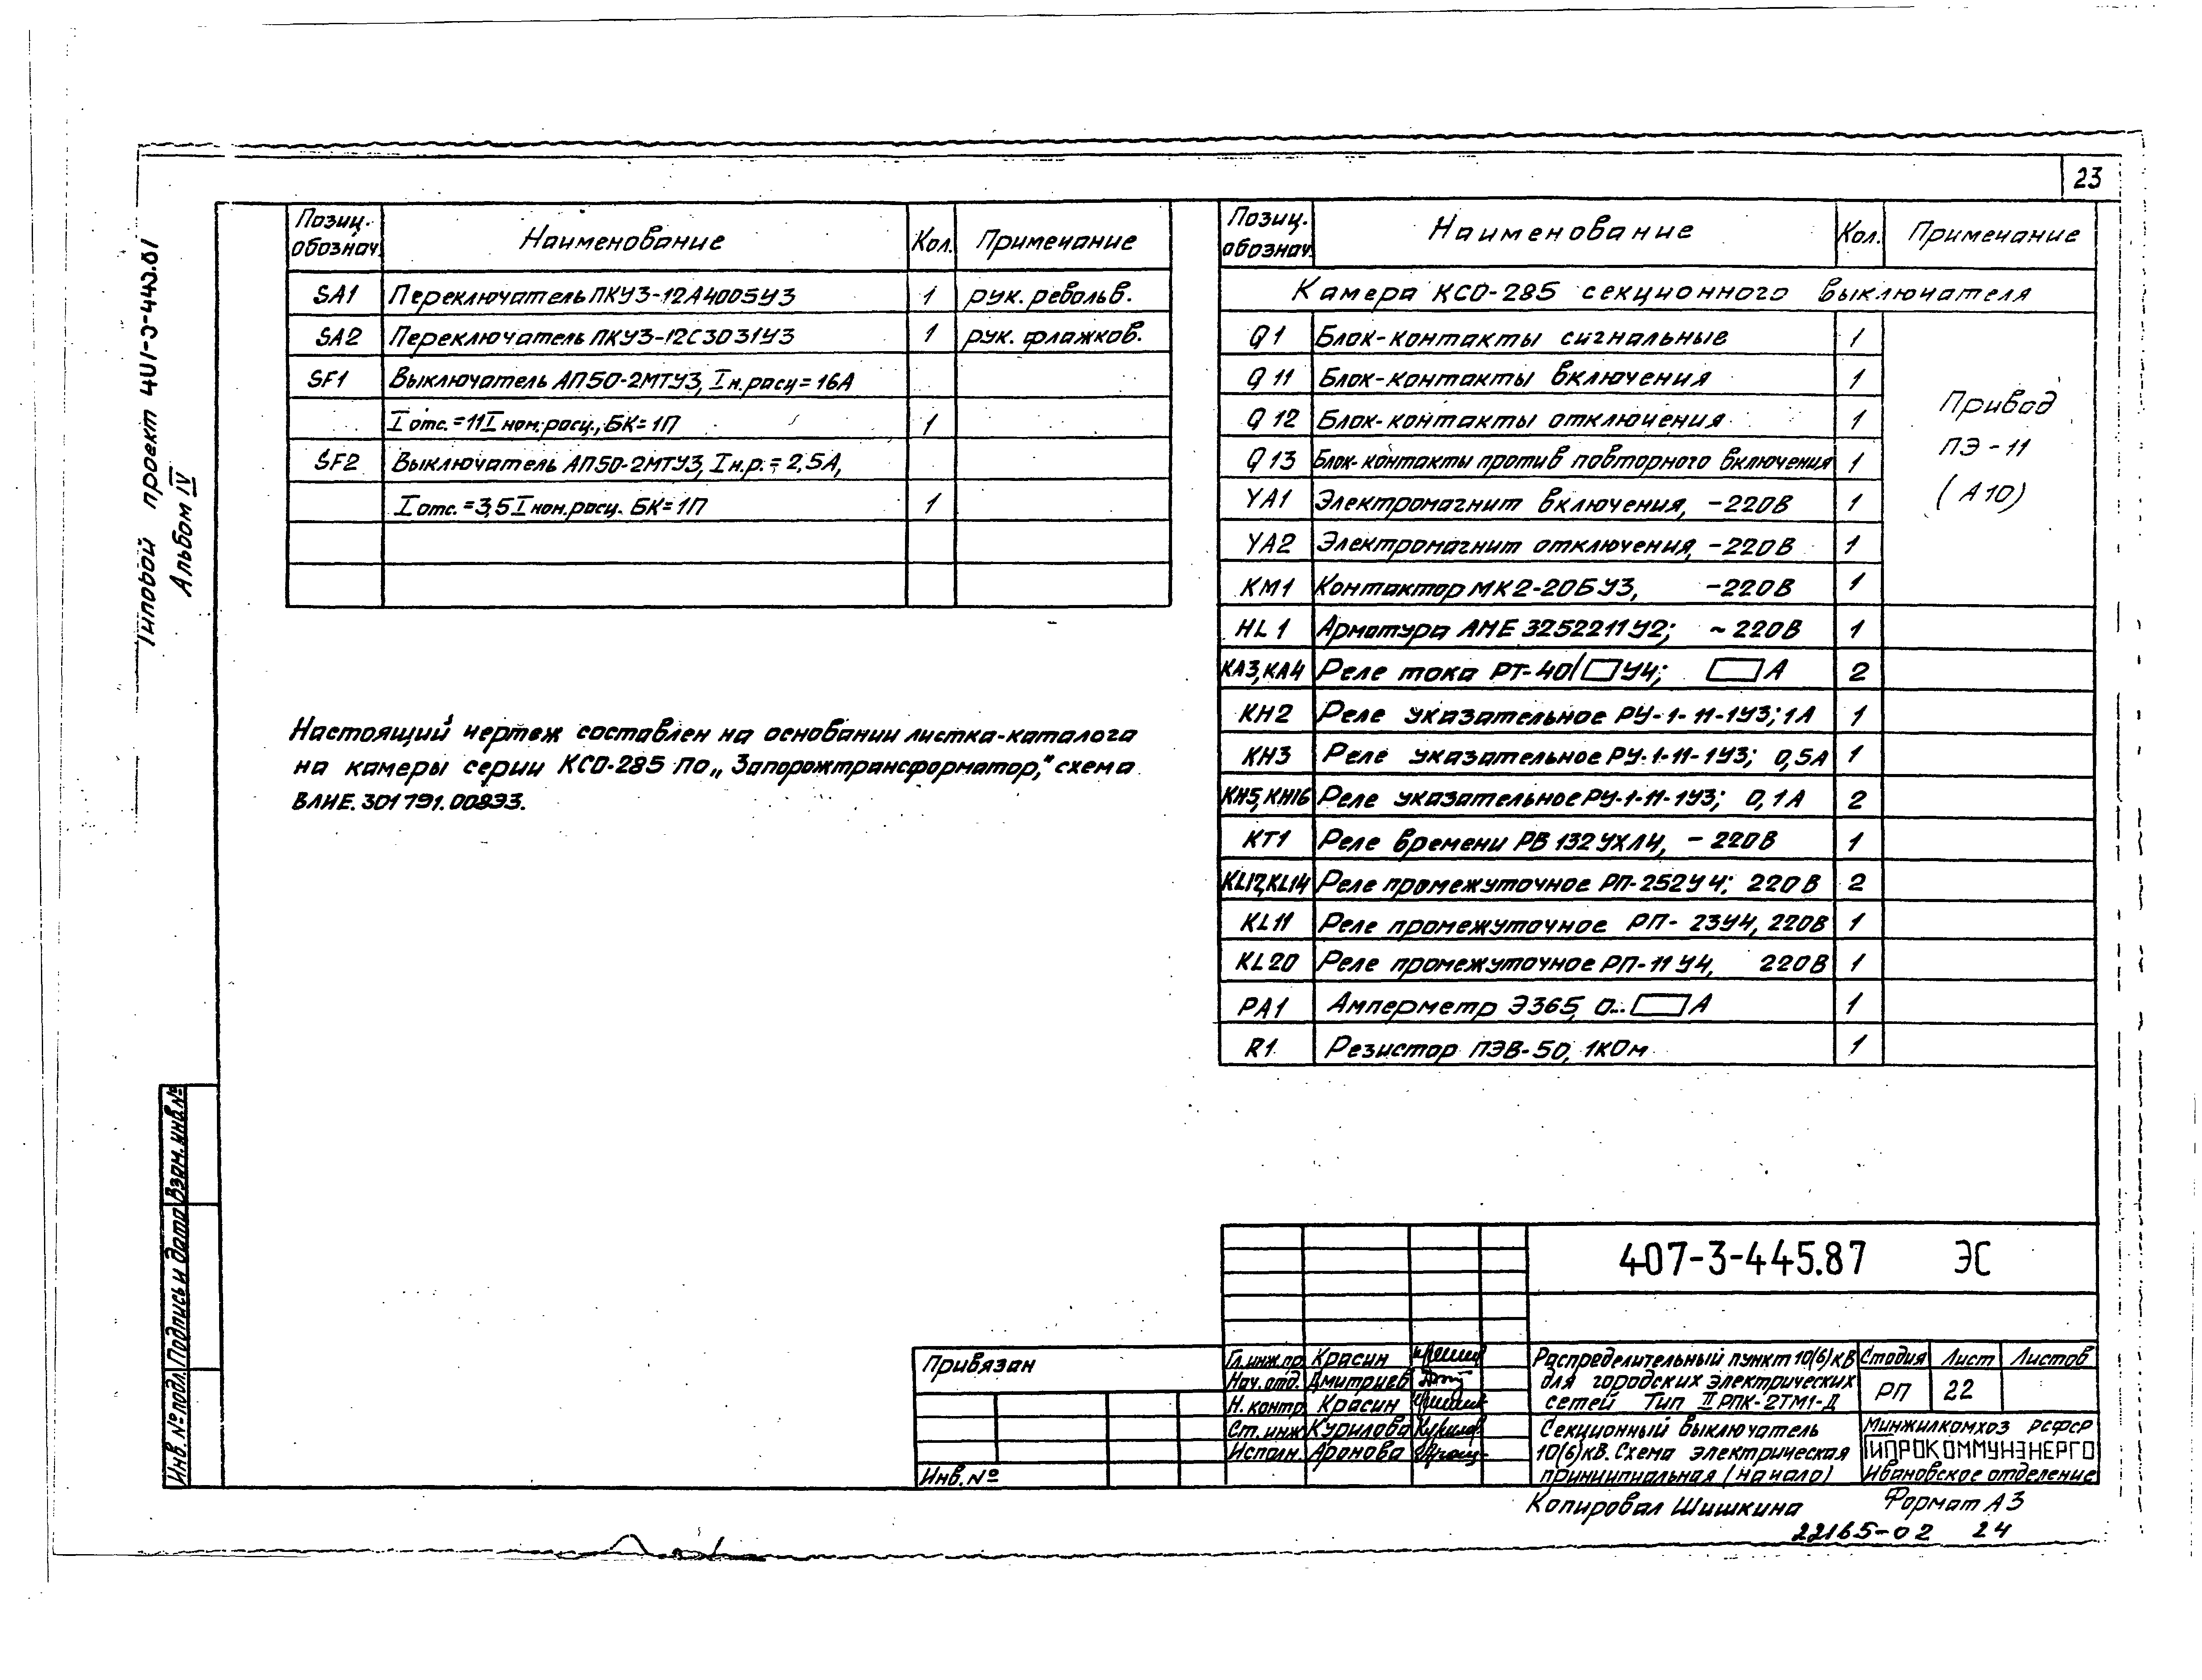 23
Типовой проект 407-3-445.87
Альбом IV
Позиц. обознач. Наименование Кол. Примечание
SA1 Переключатель ПКУ3-12А4005У3 1 рук. револьв.
SA2 Переключатель ПКУ3-12С3031У3 1 рук. флажков.
SF1 Выключатель АП50-2МТУ3, Iн.расц=16А
Iотс.=11Iном.расц., БК=1П 1
SF2 Выключатель АП50-2МТУ3, Iн.р.=2,5А,
Iотс.=3,5Iном.расц. БК=1П 1
Настоящий чертеж составлен на основании листка-каталога
на камеры серии КСО-285 ПО „Запорожтрансформатор," схема
ВЛИЕ.301791.008Э3.
Позиц. обознач. Наименование Кол. Примечание
Камера КСО-285 секционного выключателя
Q1 Блок-контакты сигнальные 1
Q11 Блок-контакты включения 1
Q12 Блок-контакты отключения 1
Q13 Блок-контакты против повторного включения 1
YA1 Электромагнит включения, -220В 1
YA2 Электромагнит отключения, -220В 1
KM1 Контактор МК2-20БУ3, -220В 1
Привод
ПЭ-11
(А10)
HL1 Арматура АМЕ 3252211У2; ~220В 1
KA3,KA4 Реле тока РТ-40/□У4; □А 2
KH2 Реле указательное РУ-1-11-1У3; 1А 1
KH3 Реле указательное РУ-1-11-1У3; 0,5А 1
KH5,KH16 Реле указательное РУ-1-11-1У3; 0,1А 2
KT1 Реле времени РВ 132УХЛ4, -220В 1
KL12,KL14 Реле промежуточное РП-252У4; 220В 2
KL11 Реле промежуточное РП-23У4, 220В 1
KL20 Реле промежуточное РП-11У4, 220В 1
PA1 Амперметр Э365, 0...□А 1
R1 Резистор ПЭВ-50, 1кОм 1
Взам. инв.№
Подпись и дата
Инв. № подл.
Привязан
Инв.№
407-3-445.87 ЭС
Гл.инж.пр. Красин
Нач.отд. Дмитриев
Н.контр Красин
Ст.инж Курилова
Исполн. Аронова
Распределительный пункт 10(6)кВ
для городских электрических
сетей Тип II РПК-2ТМ1-Д
Стадия Лист Листов
РП 22
Секционный выключатель
10(6)кВ. Схема электрическая
принципиальная (начало)
Минжилкомхоз РСФСР
ГИПРОКОММУНЭНЕРГО
Ивановское отделение
Копировал Шишкина Формат А3
22165-02 24